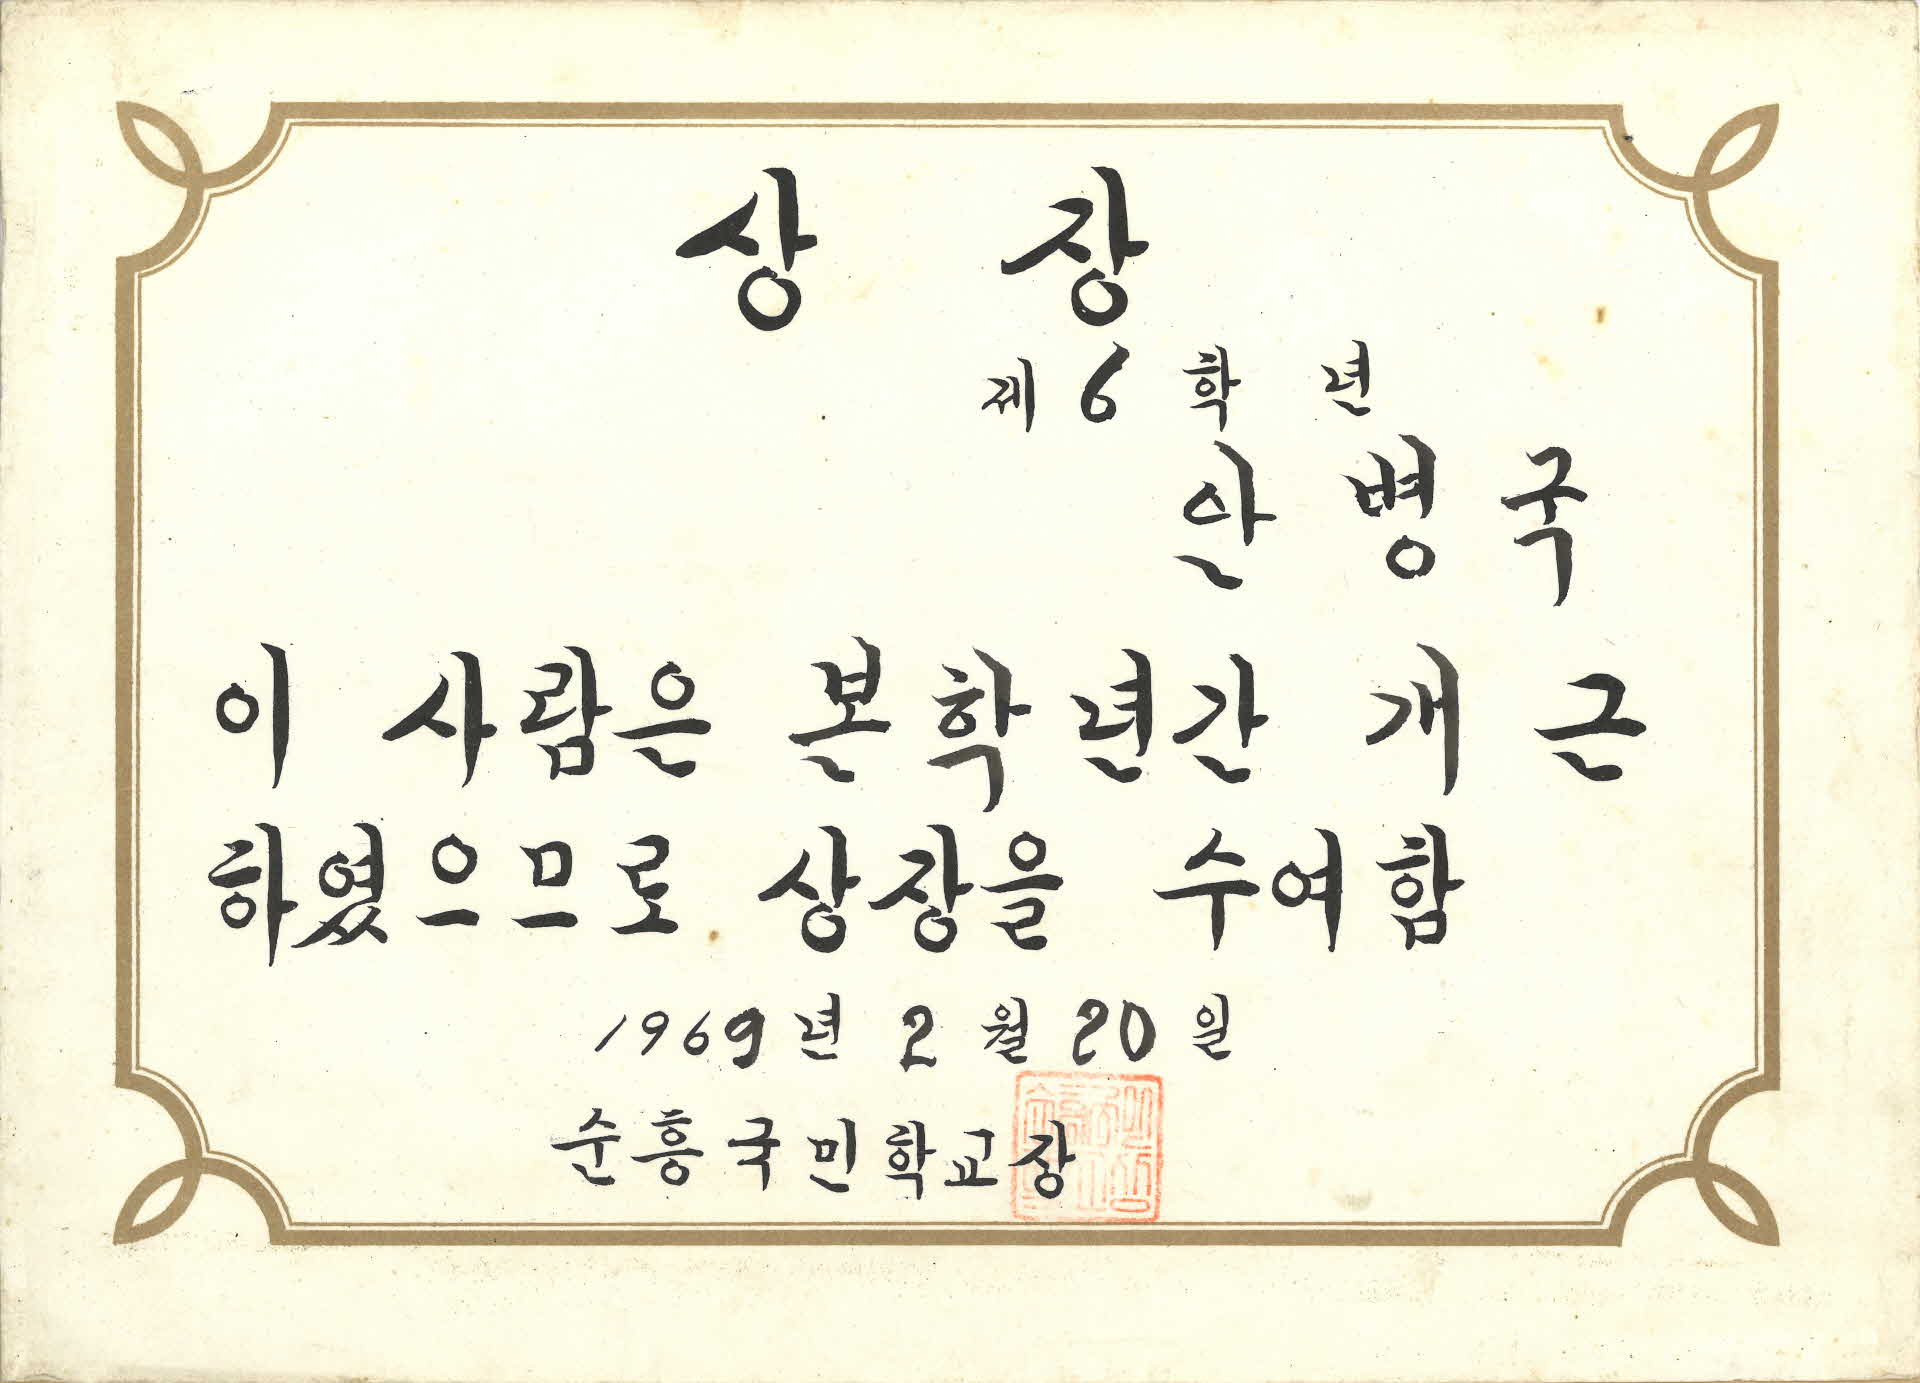 상 장
제 6 학 년
안 병 국
이 사람은 본학년간 개 근
하였으므로 상장을 수여함
1969 년 2 월 20 일
순흥국민학교장